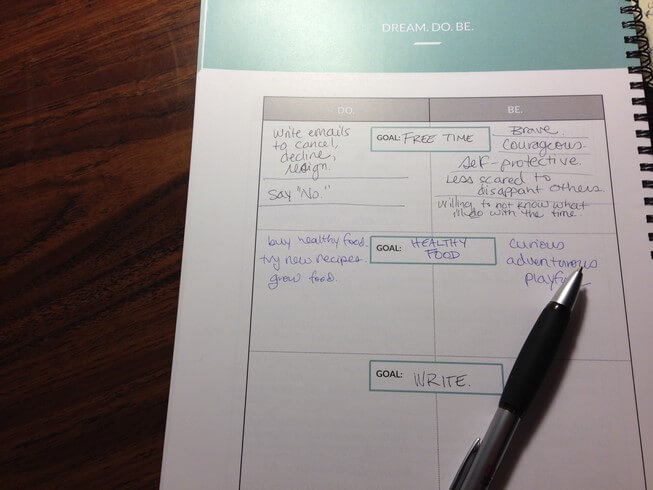 DREAM. DO. BE.
DO.
BE.
GOAL: FREE TIME
Write emails
to cancel,
decline,
resign.
say "No."
Brave.
Courageous
self-protective
Less scared to
disappoint others.
willing to not know what
I'll do with the time
GOAL: HEALTHY
FOOD
buy healthy food.
try new recipes.
grow food.
curious
adventurous
GOAL: WRITE.